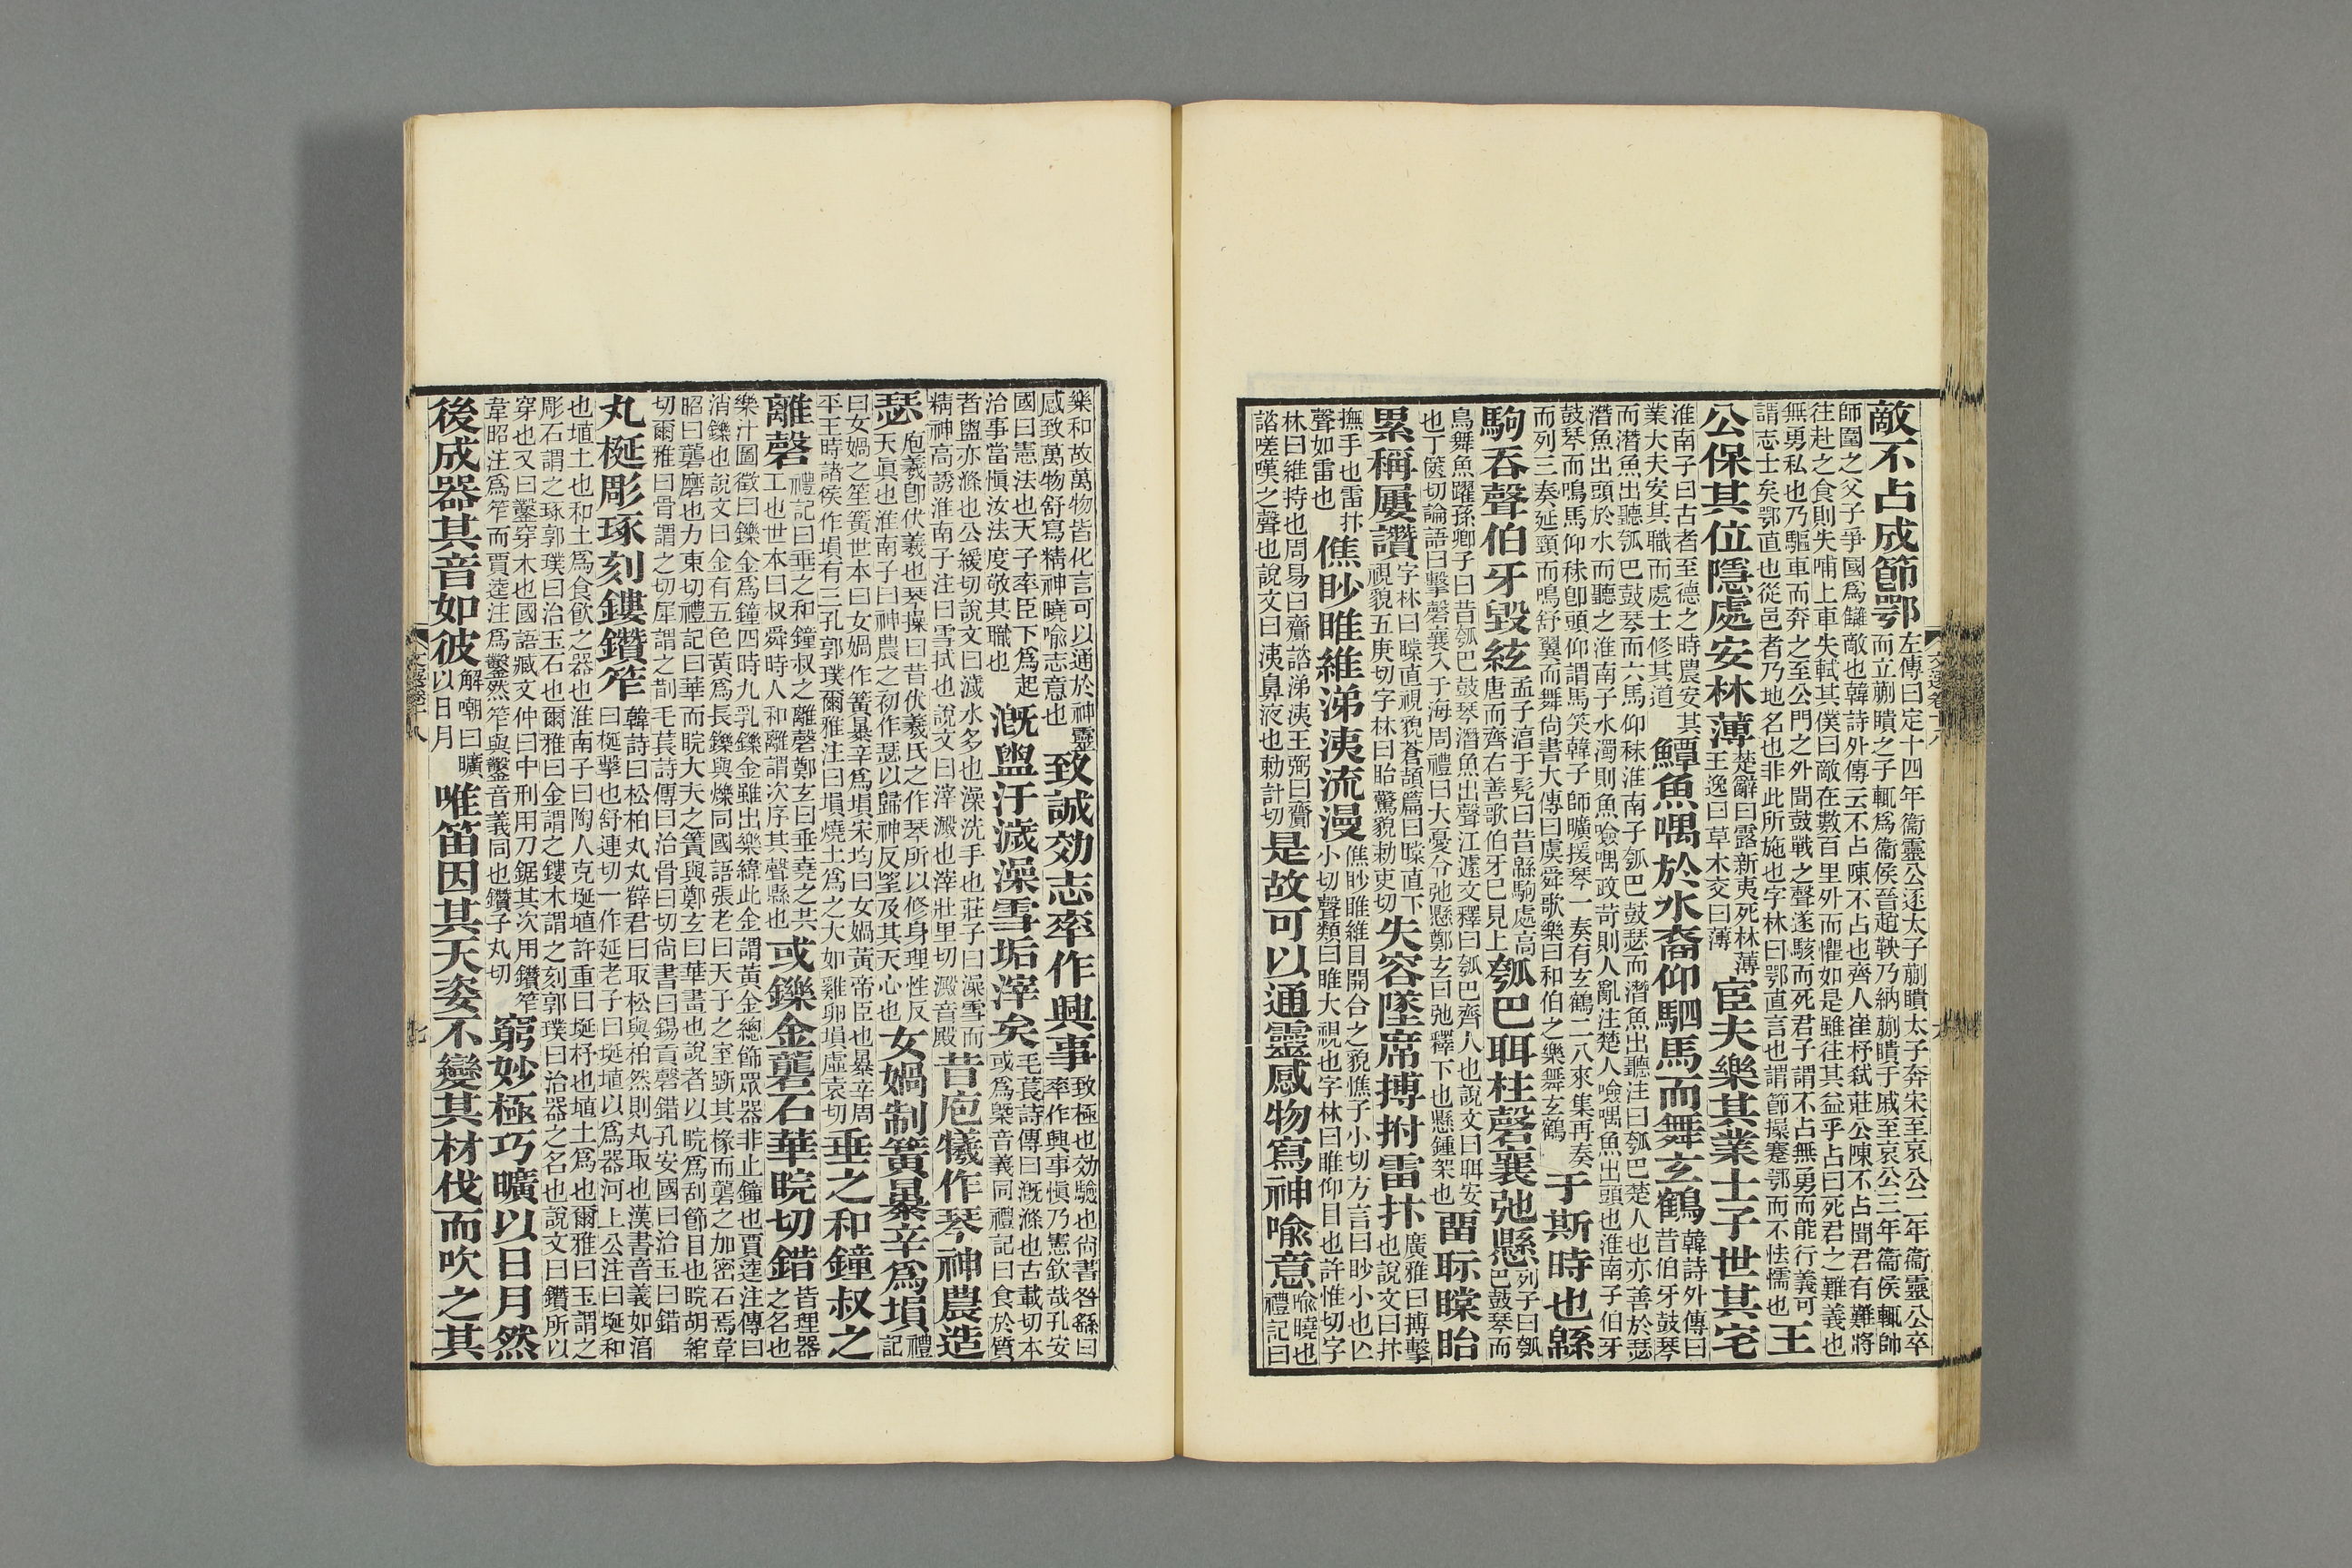 敵不占成節鄂
左傳曰定十四年衞靈公逐太子蒯聵太子奔宋至哀公二年衞靈公卒
而立蒯聵之子輒爲衞侯晉趙鞅乃納蒯聵于戚至哀公三年衞侯輒師
師圍之父子爭國爲讎敵也韓詩外傳云不占陳不占也齊人崔杼弑莊公陳不占聞君有難將
往赴之食則失哺上車失軾其僕曰敵在數百里外而懼如是雖往其益乎占曰死君之難義也
無勇私也乃驅車而奔之至公門之外聞鼓戰之聲遂駭而死君子謂不占無勇而能行義可
謂志士矣鄂直也從邑者乃地名也非此所施也字林曰鄂直言也謂節操蹇鄂而不怯懦也
王
公保其位隱處安林薄
楚辭曰露新夷死林薄
王逸曰草木交曰薄
宦夫樂其業士子世其宅
淮南子曰古者至德之時農安其
業大夫安其職而處士修其道
鱏魚喁於水裔仰駟馬而舞玄鶴
韓詩外傳曰
昔伯牙鼓琴
而潛魚出聽瓠巴鼓琴而六馬仰秣淮南子瓠巴鼓瑟而潛魚出聽注曰瓠巴楚人也亦善於瑟
潛魚出頭於水而聽之淮南子水濁則魚噞喁政苛則人亂注楚人噞喁魚出頭也淮南子伯牙
鼓琴而鳴馬仰秣卽頭仰謂馬笑韓子師曠援琴一奏有玄鶴二八來集再奏
而列三奏延頸而鳴舒翼而舞尙書大傳曰虞舜歌樂曰和伯之樂舞玄鶴
于斯時也緜
駒吞聲伯牙毀絃
孟子淳于髠曰昔緜駒處高
唐而齊右善歌伯牙已見上
瓠巴聑柱磬襄弛懸
列子曰瓠
巴鼓琴而
鳥舞魚躍孫卿子曰昔瓠巴鼓琴潛魚出聲江遽文釋曰瓠巴齊人也說文曰聑安
也丁篋切論語曰擊磬襄入于海周禮曰大憂令弛懸鄭玄曰弛釋下也懸鍾架也
畱䀏瞠眙
累稱屢讚
字林曰瞠直視貌蒼頡篇曰瞠直下
視貌五庚切字林曰眙驚貌勑吏切
失容墜席搏拊雷抃
廣雅曰搏擊
也說文曰抃
撫手也雷抃
聲如雷也
僬眇睢維涕洟流漫
僬眇睢維目開合之貌僬子小切方言曰眇小也亡
小切聲類曰睢大視也字林曰睢仰目也許惟切字
林曰維持也周易曰齎諮涕洟王弼曰齎
諮嗟嘆之聲也說文曰洟鼻液也勑計切
是故可以通靈感物寫神喻意
喻曉也
禮記曰
文選卷十八
六
樂和故萬物皆化言可以通於神靈
感致萬物舒寫精神曉喻志意也
致誠効志率作興事
致極也効驗也尙書咎繇曰
率作興事愼乃憲欽哉孔安
國曰憲法也天子率臣下爲起
治事當愼汝法度敬其職也
漑盥汙濊澡雪垢滓矣
毛萇詩傳曰漑滌也古載切本
或爲槩音義同禮記曰食於質
者盥亦滌也公緩切說文曰濊水多也澡洗手也莊子曰澡雪而
精神高誘淮南子注曰雪拭也說文曰滓澱也滓壯里切澱音殿
昔庖犧作琴神農造
瑟
庖羲卽伏羲也琴操曰昔伏羲氏之作琴所以修身理性反
天眞也淮南子曰神農之初作瑟以歸神反望及其天心也
女媧制簧暴辛爲塤
禮
記
曰女媧之笙簧世本曰女媧作簧暴辛爲塤宋均曰女媧黃帝臣也暴辛周
平王時諸侯作塤有三孔郭璞爾雅注曰塤燒土爲之大如雞卵塤虛袁切
垂之和鐘叔之
離磬
禮記曰垂之和鐘叔之離磬鄭玄曰垂堯之共
工也世本曰叔舜時人和離謂次序其聲縣也
或鑠金礱石華睆切錯
皆理器
之名也
樂汁圖徵曰鑠金爲鐘四時九乳鑠金雖出樂緯此金謂黃金總飾眾器非止鐘也賈逵注傳曰
消鑠也說文曰金有五色黃爲長鑠與爍同國語張老曰天子之室斲其椽而礱之加密石焉韋
昭曰礱磨也力東切禮記曰華而睆大夫之簀與鄭玄曰華畫也說者以睆爲刮節目也睆胡綰
切爾雅曰骨謂之切犀謂之剒毛萇詩傳曰治骨曰切尙書曰錫貢磬錯孔安國曰治玉曰錯
丸梴彫琢刻鏤鑽笮
韓詩曰松柏丸丸薛君曰取松與柏然則丸取也漢書音義如淳
曰梴擊也舒連切一作延老子曰埏埴以爲器河上公注曰埏和
也埴土也和土爲食飮之器也淮南子曰陶人克埏埴許重曰埏杼也埴土爲也爾雅曰玉謂之
彫石謂之琢郭璞曰治玉石也爾雅曰金謂之鏤木謂之刻郭璞曰治器之名也說文曰鑽所以
穿也又曰鑿穿木也國語臧文仲曰中刑用刀鋸其次用鑽笮
韋昭注爲笮而賈逵注爲鑿然笮與鑿音義同也鑽子丸切
窮妙極巧曠以日月然
後成器其音如彼
解嘲曰曠
以日月
唯笛因其天姿不變其材伐而吹之其
文選卷十八
七